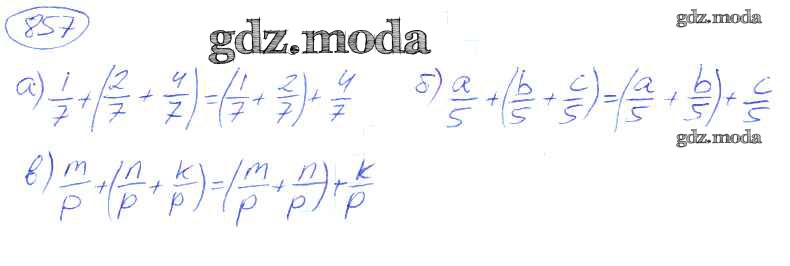 857
gdz.moda
gdz.moda
а) 1/7 + (2/7 + 4/7) = (1/7 + 2/7) + 4/7
б) a/5 + (b/5 + c/5) = (a/5 + b/5) + c/5
gdz.moda
в) m/p + (n/p + k/p) = (m/p + n/p) + k/p